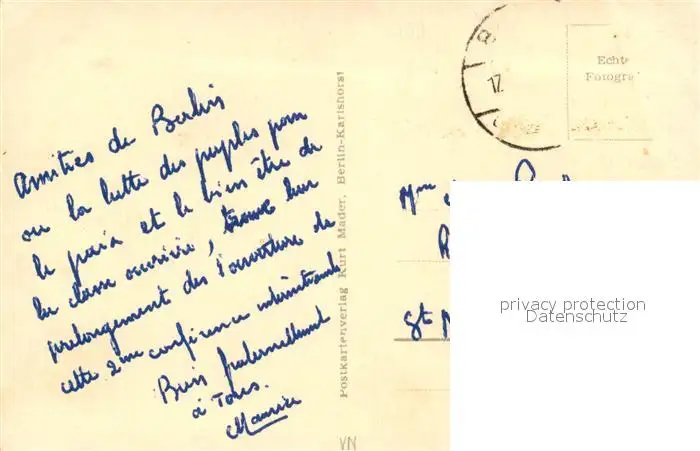 Amitiés de Berlin
ou la lutte des peuples pour
la paix et le bien être de
la classe ouvrière, trouve leur
prolongement dès l'ouverture de
cette 2me conférence
Bien fraternellement
à Tous.
Maurice
Postkartenverlag Kurt Mader, Berlin-Karlshorst
VN
17
Echte
Fotogra
Mme
St
privacy protection
Datenschutz